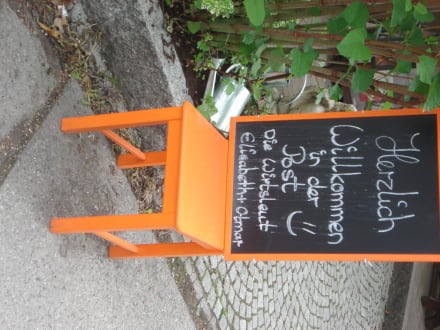 Herzlich
Willkommen
in der
Post
Die Wirtsleut
Elisabeth+Otmar